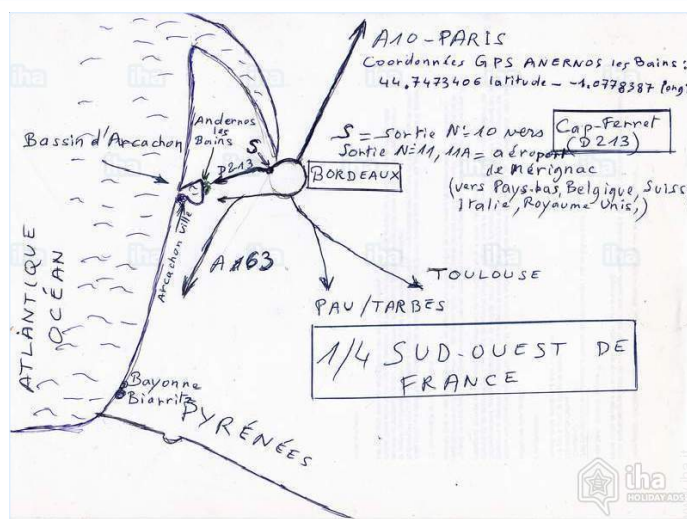 A10-PARIS
Coordonnées GPS ANERNOS les Bains :
44.7473406 latitude - -1.0778387 longi
S = Sortie N°10 vers Cap-Ferret (D213)
Sortie N°11, 11A = aéroport
de Mérignac
(vers Pays-bas, Belgique, Suiss
Italie, Royaume Unis,)
Andernos
les
Bains
Bassin d'Arcachon
S
D213
BORDEAUX
Arcachon ville
A 63
TOULOUSE
PAU/TARBES
ATLANTIQUE
OCÉAN
1/4 SUD-OUEST DE
FRANCE
Bayonne
Biarritz
PYRÉNÉES
iha
HOLIDAY ADS